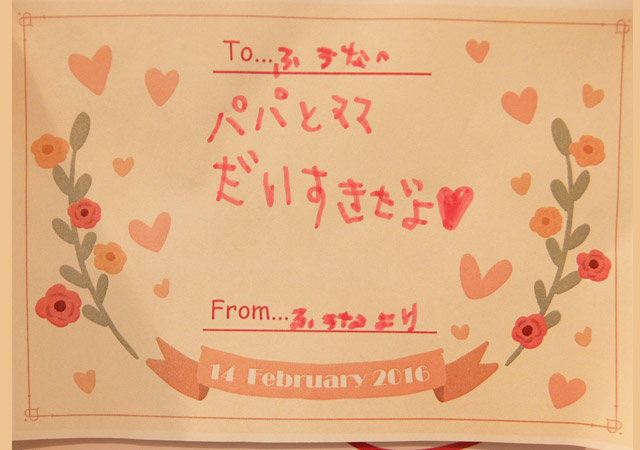 To...
パパとママ
だいすきだよ♥
From... より
14 February 2016